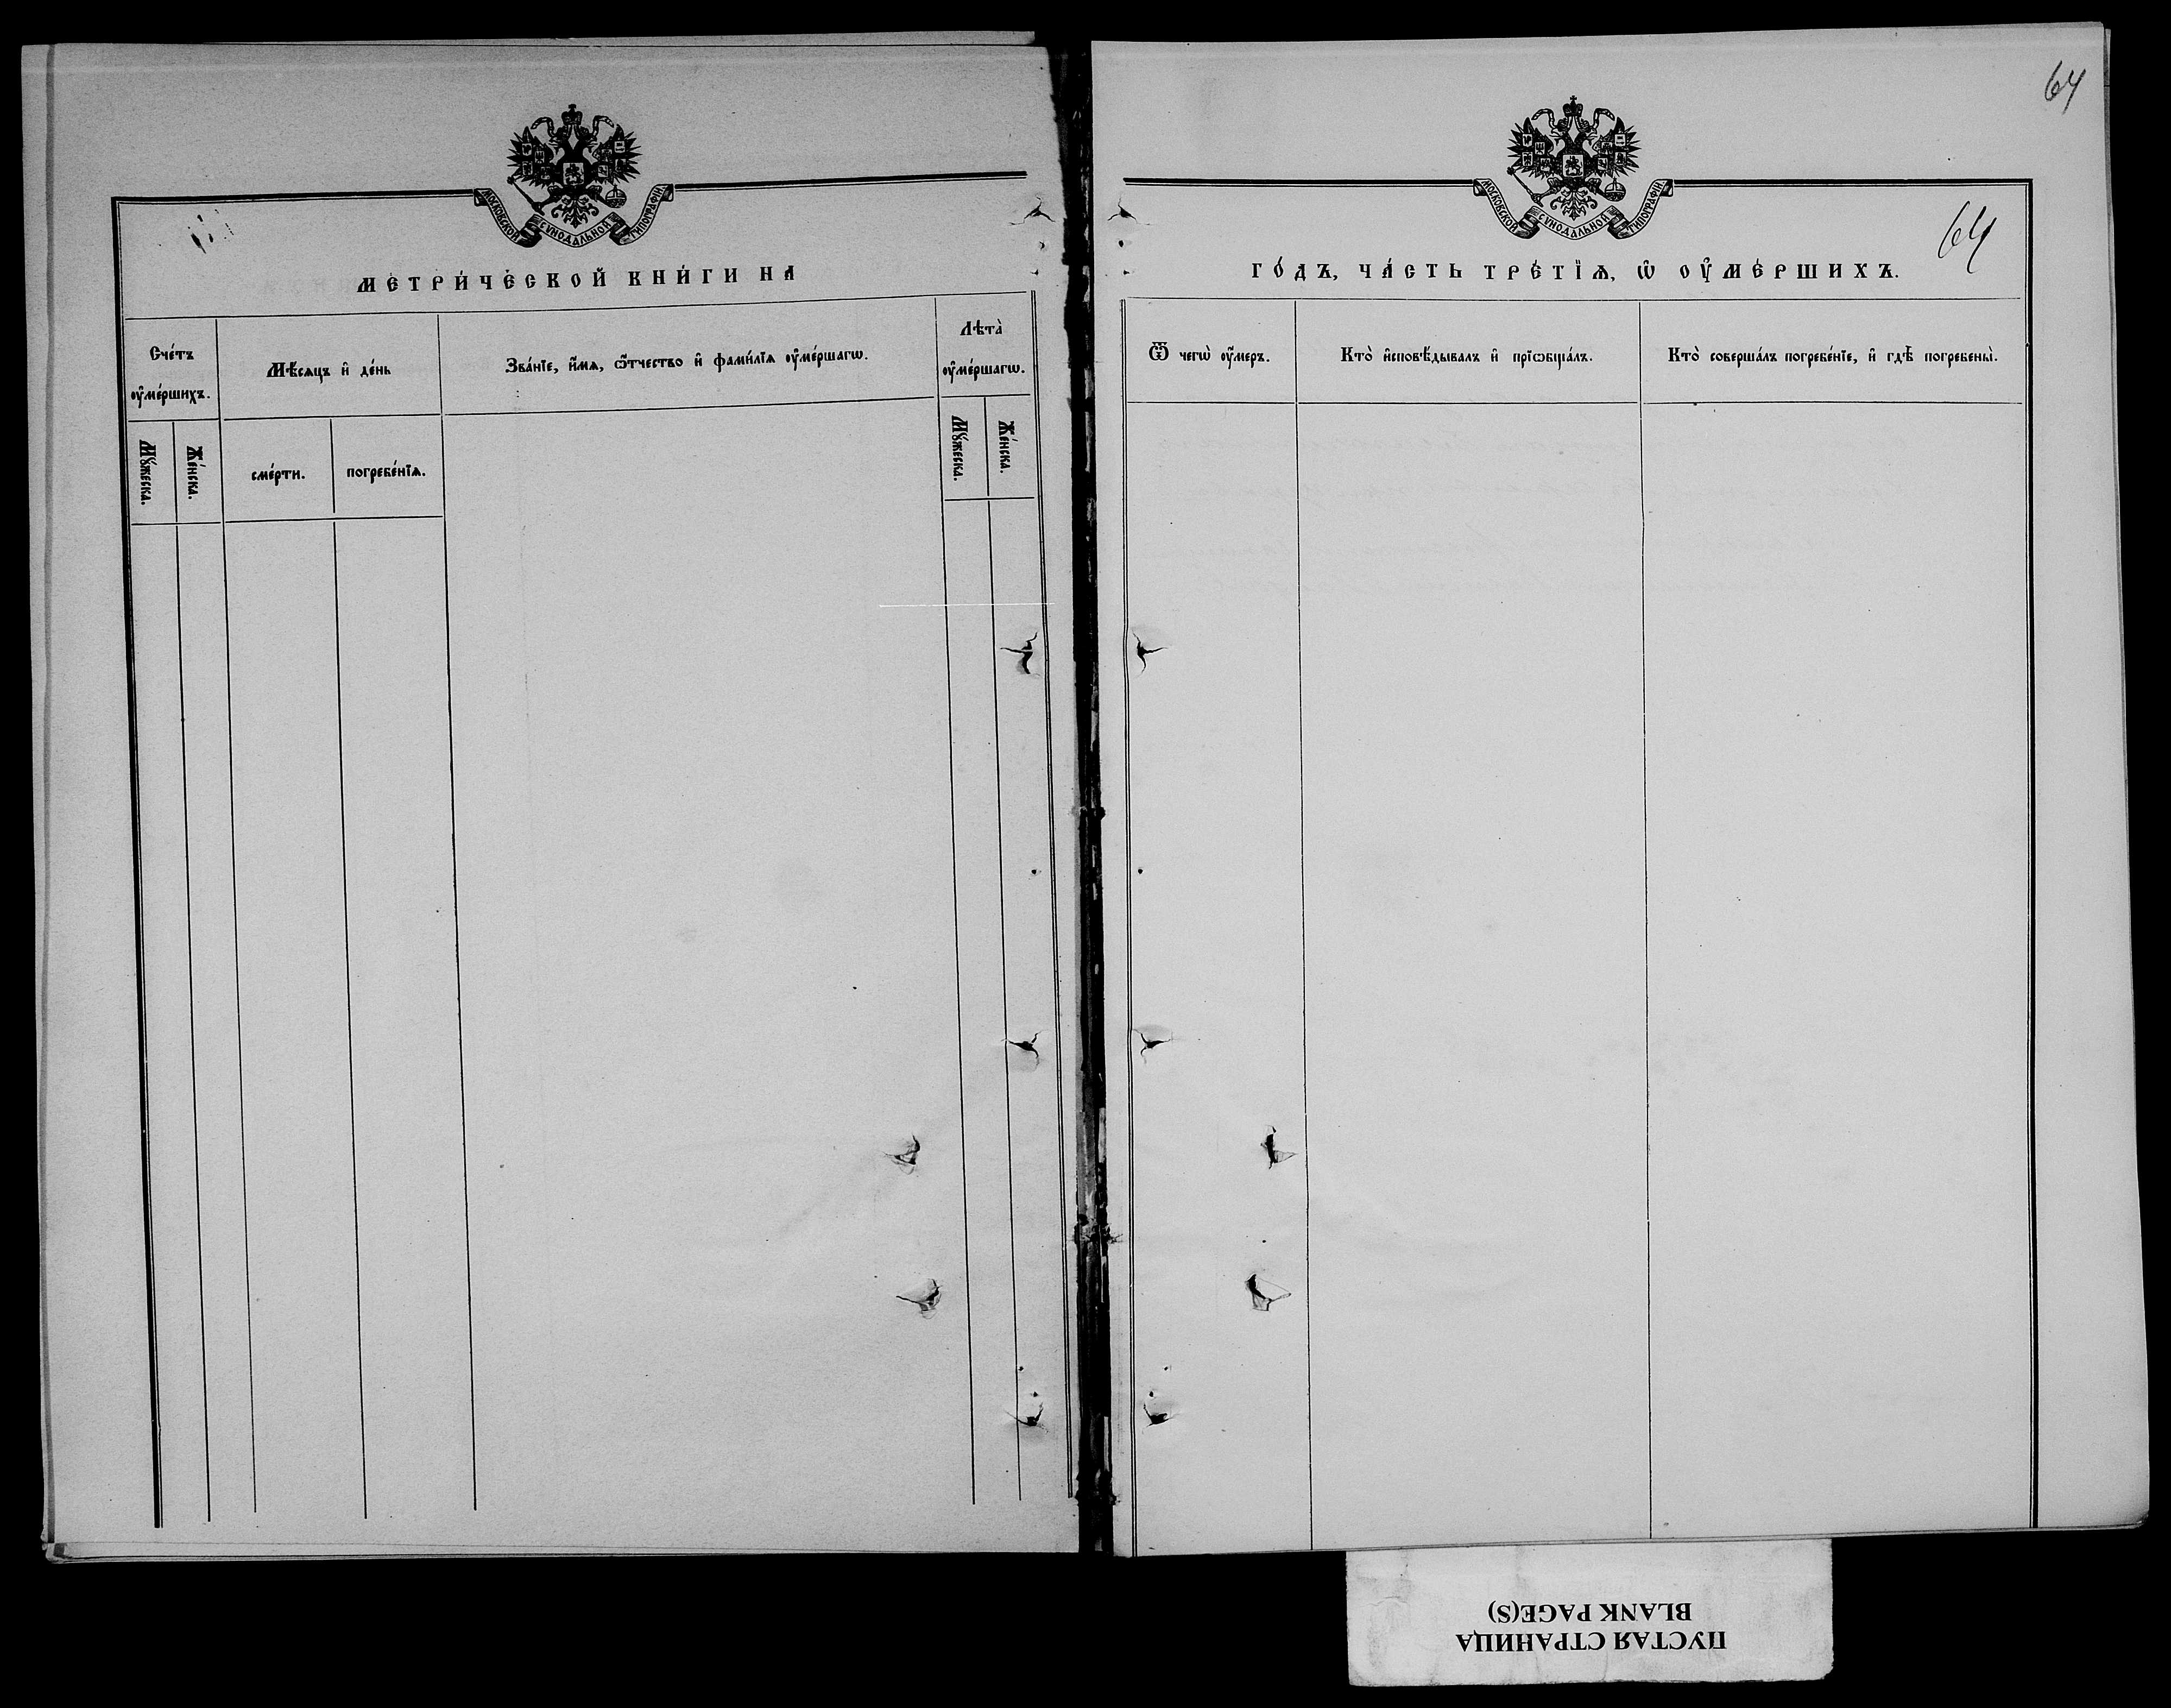 64
МОСКОВСКОЙ СѴНОДАЛЬНОЙ ТИПОГРАФІИ
МЕТРИ́ЧЕСКОЙ КНИ́ГИ НА
Сче́тъ ᲂу҆ме́ршихъ.
Мѣ́сяцъ и҆ де́нь
Зва́нїе, и҆́мѧ, ѻ҆́тчество и҆ фами́лїѧ ᲂу҆ме́ршагѡ.
Лѣта̀ ᲂу҆ме́ршагѡ.
Мꙋ́жеска.
Же́нска.
сме́рти.
погребе́нїѧ.
Мꙋ́жеска.
Же́нска.
МОСКОВСКОЙ СѴНОДАЛЬНОЙ ТИПОГРАФІИ
64
ГО́ДЪ, ЧА́СТЬ ТРЕ́ТЇѦ, Ѡ҆ ОУ҆МЕ́РШИХЪ.
Ѿ чегѡ̀ ᲂу҆́меръ.
Кто̀ и҆сповѣ́дывалъ и҆ прїѡбща́лъ.
Кто̀ соверша́лъ погребе́нїе, и҆ гдѣ̀ погребены̀.
ПУСТАЯ СТРАНИЦА
BLANK PAGE(S)